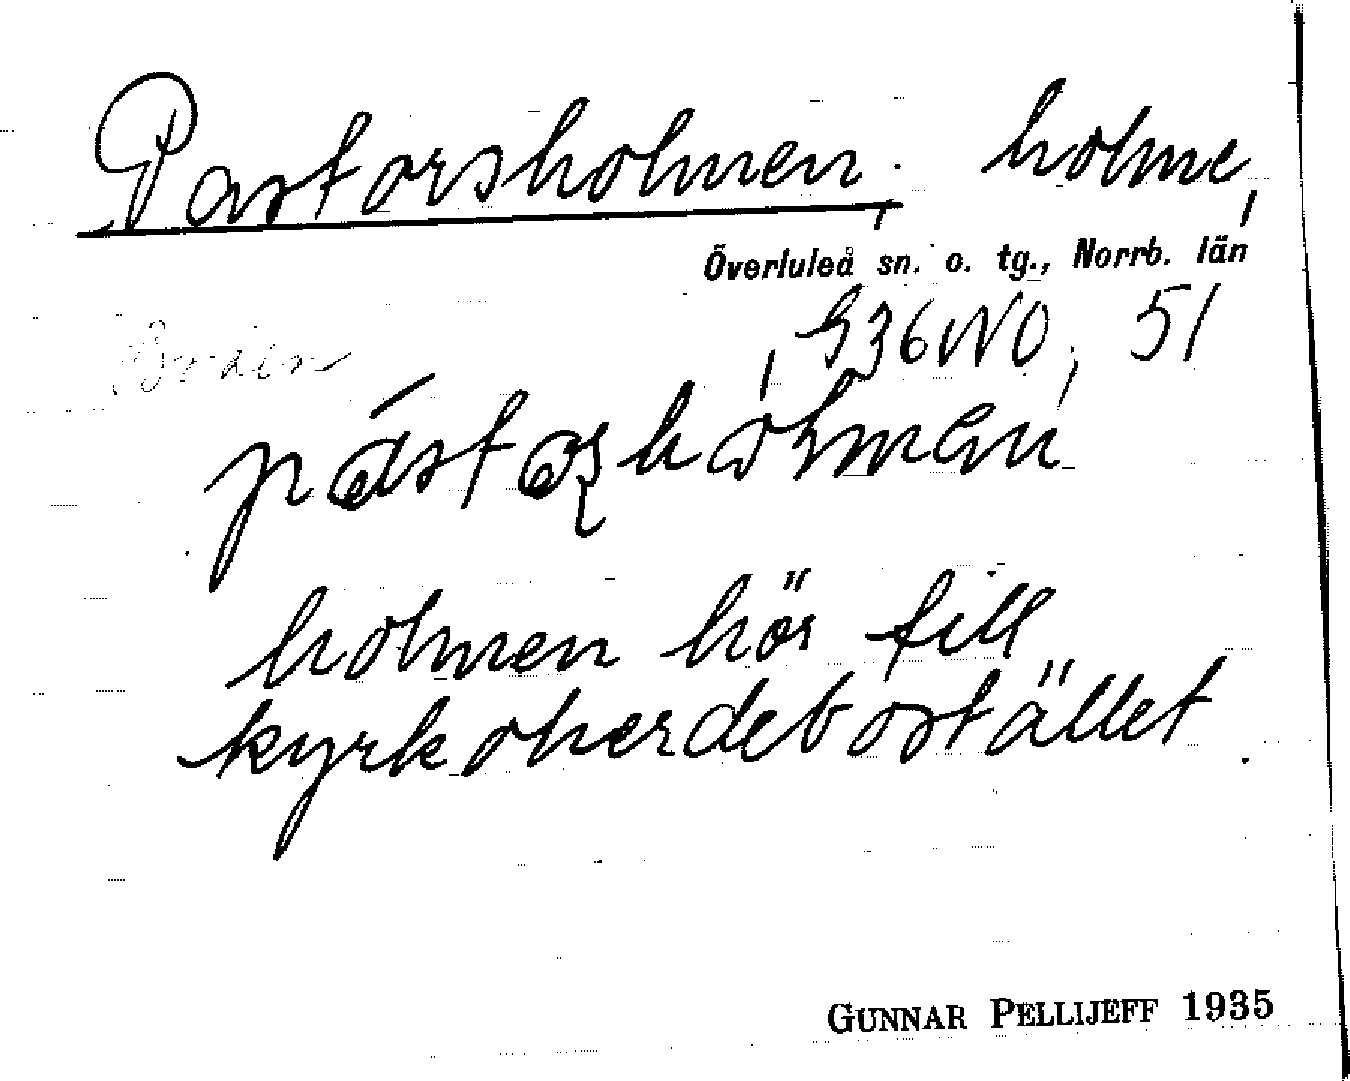 Pastorsholmen, holme,
Överluleå sn. o. tg., Norrb. län
Boden , G36NO, 51
holmen hör till
kyrkoherdebostället
GUNNAR PELLIJEFF 1935